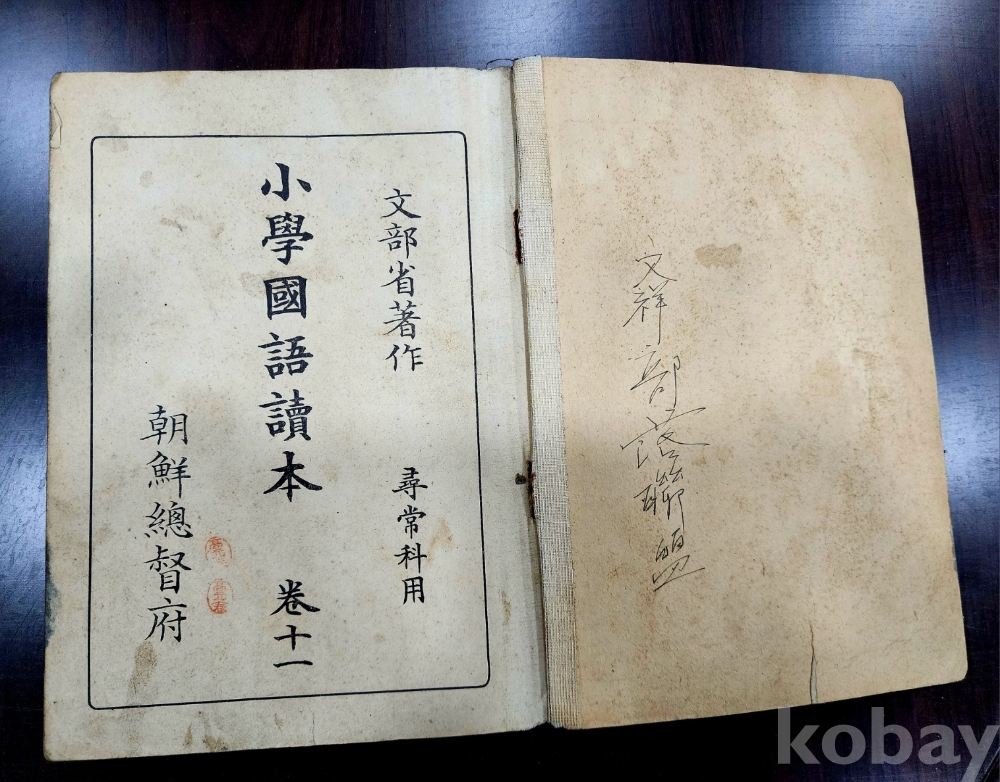 文部省著作 尋常科用
小學國語讀本 卷十一
朝鮮總督府
文祥部落聯盟
kobay